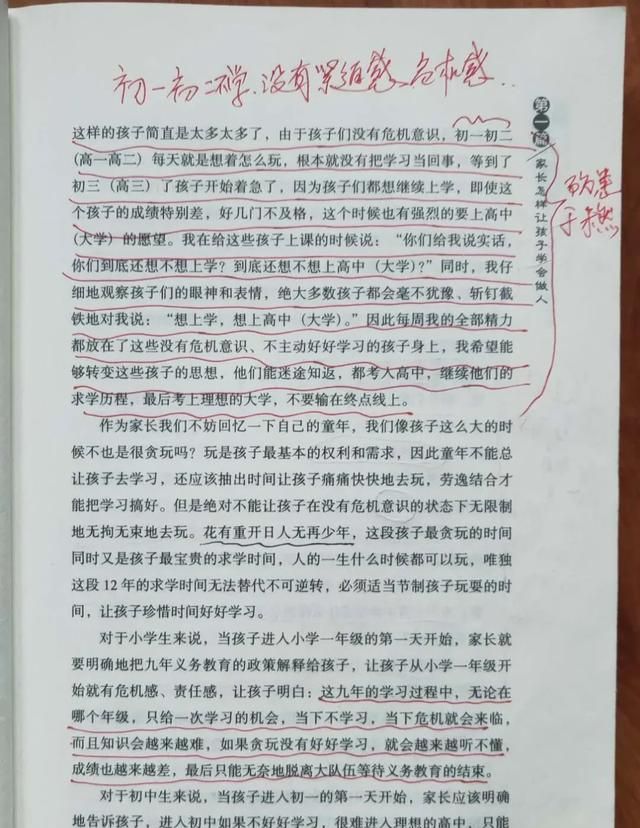 初一初二不学、没有紧迫感、危机感..
第一篇
家长怎样让孩子学会做人
防患
于未燃
这样的孩子简直是太多太多了，由于孩子们没有危机意识，初一初二
（高一高二）每天就是想着怎么玩，根本就没有把学习当回事，等到了
初三（高三）了孩子开始着急了，因为孩子们都想继续上学，即使这
个孩子的成绩特别差，好几门不及格，这个时候也有强烈的要上高中
（大学）的愿望。我在给这些孩子上课的时候说：“你们给我说实话，
你们到底还想不想上学？到底还想不想上高中（大学）？”同时，我仔
细地观察孩子们的眼神和表情，绝大多数孩子都会毫不犹豫、斩钉截
铁地对我说：“想上学，想上高中（大学）。”因此每周我的全部精力
都放在了这些没有危机意识、不主动好好学习的孩子身上，我希望能
够转变这些孩子的思想，他们能迷途知返，都考入高中，继续他们的
求学历程，最后考上理想的大学，不要输在终点线上。
作为家长我们不妨回忆一下自己的童年，我们像孩子这么大的时
候不也是很贪玩吗？玩是孩子最基本的权利和需求，因此童年不能总
让孩子去学习，还应该抽出时间让孩子痛痛快快地去玩，劳逸结合才
能把学习搞好。但是绝对不能让孩子在没有危机意识的状态下无限制
地无拘无束地去玩。花有重开日人无再少年，这段孩子最贪玩的时间
同时又是孩子最宝贵的求学时间，人的一生什么时候都可以玩，唯独
这段 12 年的求学时间无法替代不可逆转，必须适当节制孩子玩耍的时
间，让孩子珍惜时间好好学习。
对于小学生来说，当孩子进入小学一年级的第一天开始，家长就
要明确地把九年义务教育的政策解释给孩子，让孩子从小学一年级开
始就有危机感、责任感，让孩子明白：这九年的学习过程中，无论在
哪个年级，只给一次学习的机会，当下不学习，当下危机就会来临，
而且知识会越来越难，如果贪玩没有好好学习，就会越来越听不懂，
成绩也越来越差，最后只能无奈地脱离大队伍等待义务教育的结束。
对于初中生来说，当孩子进入初一的第一天开始，家长应该明确
地告诉孩子，进入初中如果不好好学习，很难进入理想的高中，只能